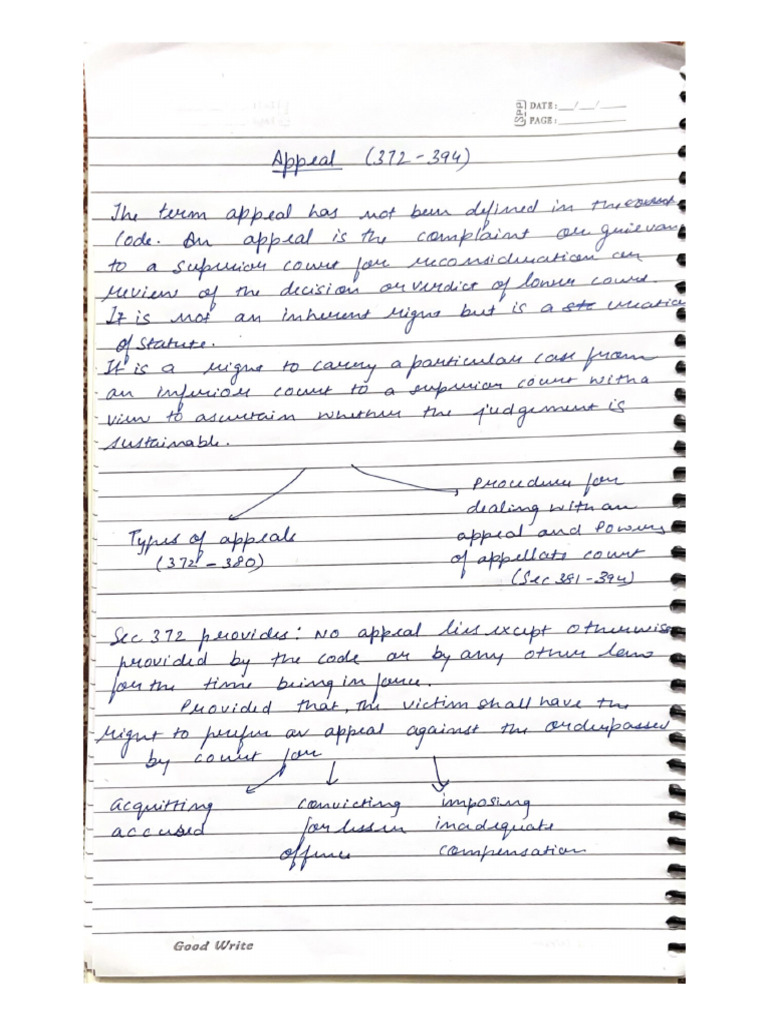 SPP DATE: __/__/____
PAGE: ________
Appeal (372-394)
The term appeal has not been defined in the
Code. An appeal is the complaint or grievan
to a superior court for reconsideration or
review of the decision or verdict of lower court.
It is not an inherent right but is a creatio
of statute.
It is a right to carry a particular case from
an inferior court to a superior court with a
view to ascertain whether the judgement is
sustainable.
Procedure for
dealing with an
Types of appeals appeal and Powers
(372 - 380) of appellate court
(Sec 381-394)
Sec 372 provides: No appeal lies except otherwise
provided by the code or by any other law
for the time being in force.
Provided that, the victim shall have the
right to prefer an appeal against the order passed
by court for
acquitting convicting imposing
accused for lesser inadequate
offence compensation
Good Write